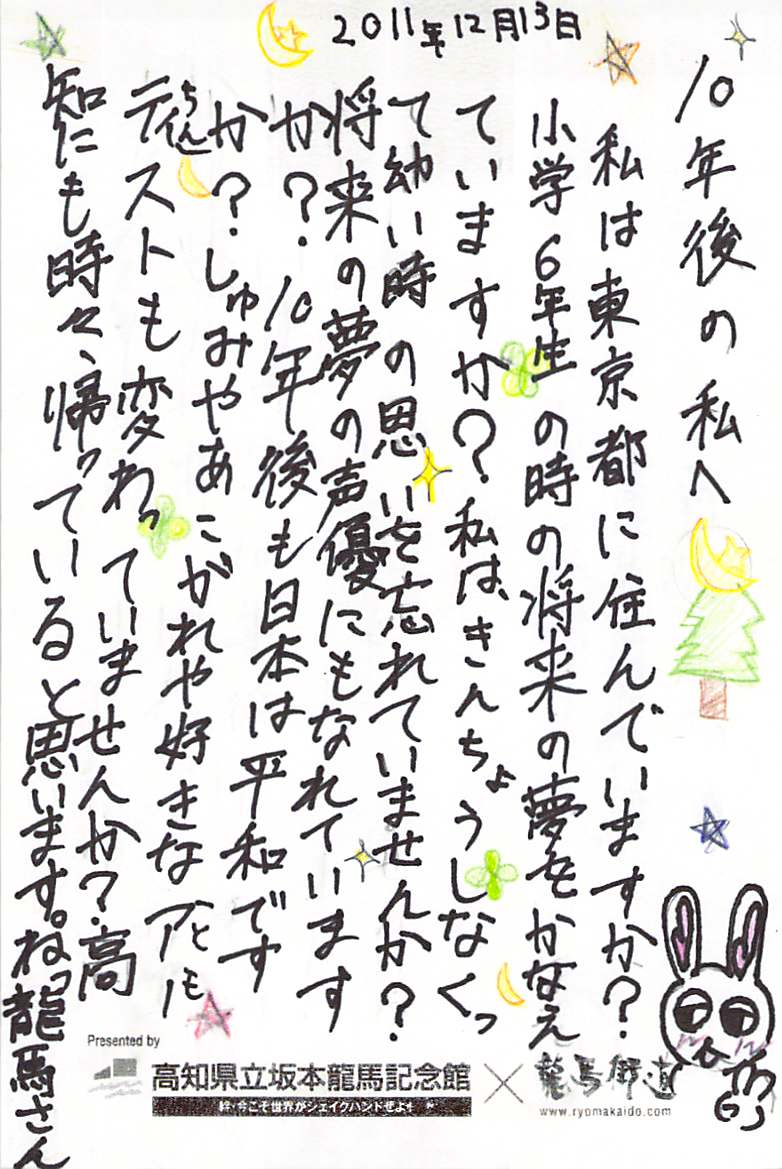 2011年12月13日
10年後の私へ
私は東京都に住んでいますか?
小学6年生の時の将来の夢をかなえ
ていますか?私は、きんちょうしなくっ
て幼い時の思いを忘れていませんか?
将来の夢の声優にもなれています
か?10年後も日本は平和です
か?しゅみやあこがれや好きなアー
ティストも変わっていませんか?高
知にも時々、帰っていると思います。ねっ龍馬さん
Presented by
高知県立坂本龍馬記念館
龍馬街道
www.ryomakaido.com